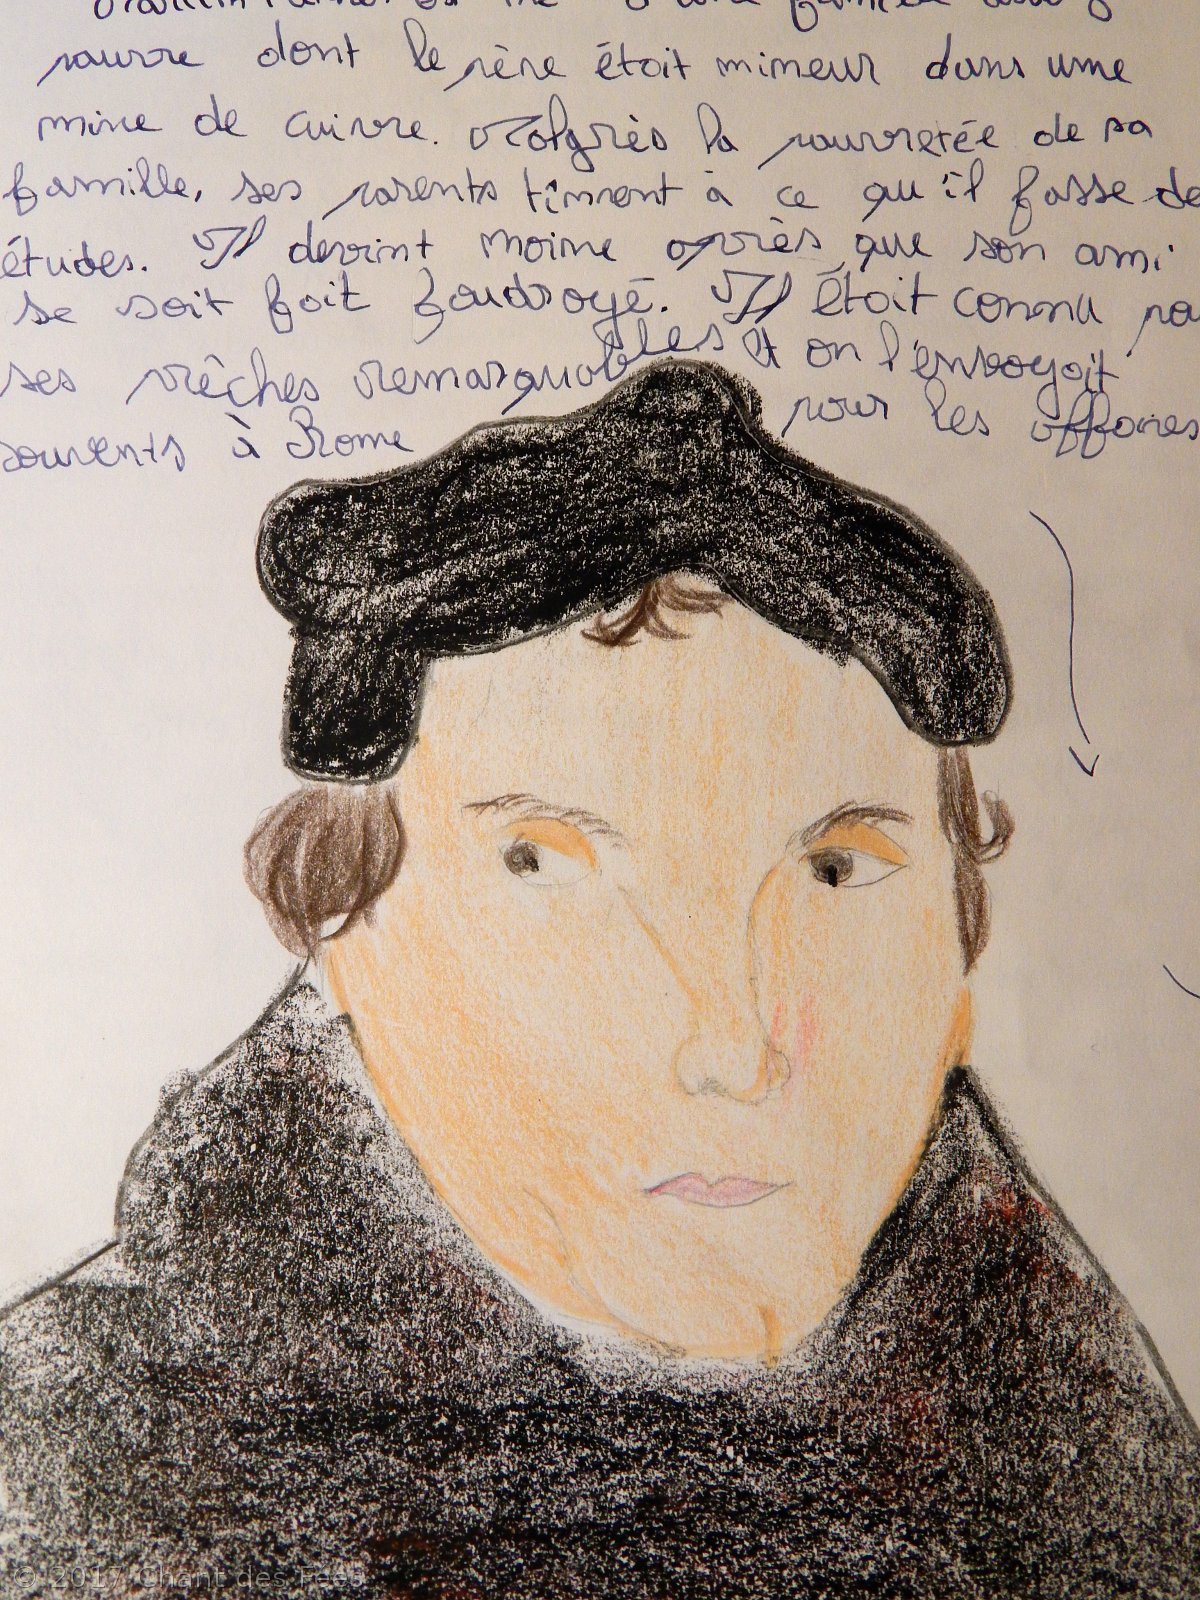 Martin Luther est né d'une famille assez
pauvre dont le père était mineur dans une
mine de cuivre. Malgrès la pauvretée de sa
famille, ses parents tinrent à ce qu'il fasse de
études. Il devint moine après que son ami
se soit fait foudroyé. Il était connu po
ses prêches remarquables et on l'envoyait
souvents à Rome pour les affaires
© 2017 Chant des Fées